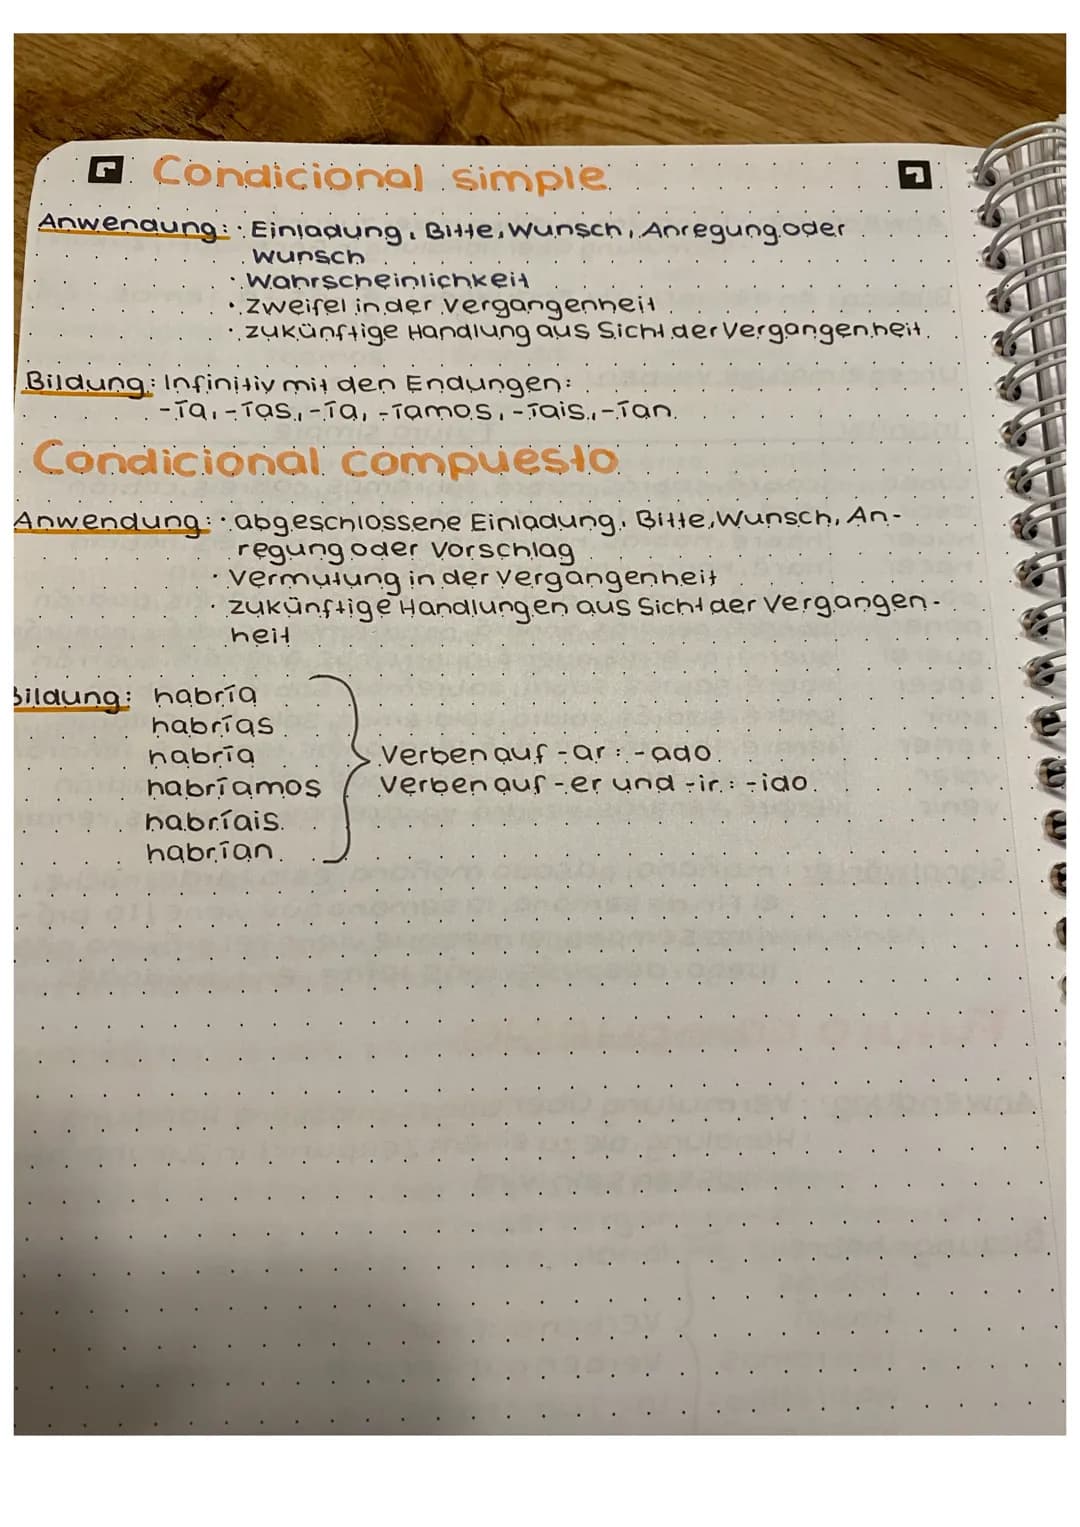 Condicional simple
Anwendung: · Einladung, Bitte, Wunsch, Anregung oder
Wunsch
· Wahrscheinlichkeit
· Zweifel in der Vergangenheit
· zukünftige Handlung aus Sicht der Vergangenheit
Bildung: Infinitiv mit den Endungen:
-ía, -ías, -ía, -íamos, -íais, -ían
Condicional compuesto
Anwendung: · abgeschlossene Einladung, Bitte, Wunsch, An-
regung oder Vorschlag
· Vermutung in der Vergangenheit
· zukünftige Handlungen aus Sicht der Vergangen-
heit
Bildung: habría
habrías
habría
Verben auf -ar: -ado
habríamos
Verben auf -er und -ir: -ido
habríais
habrían